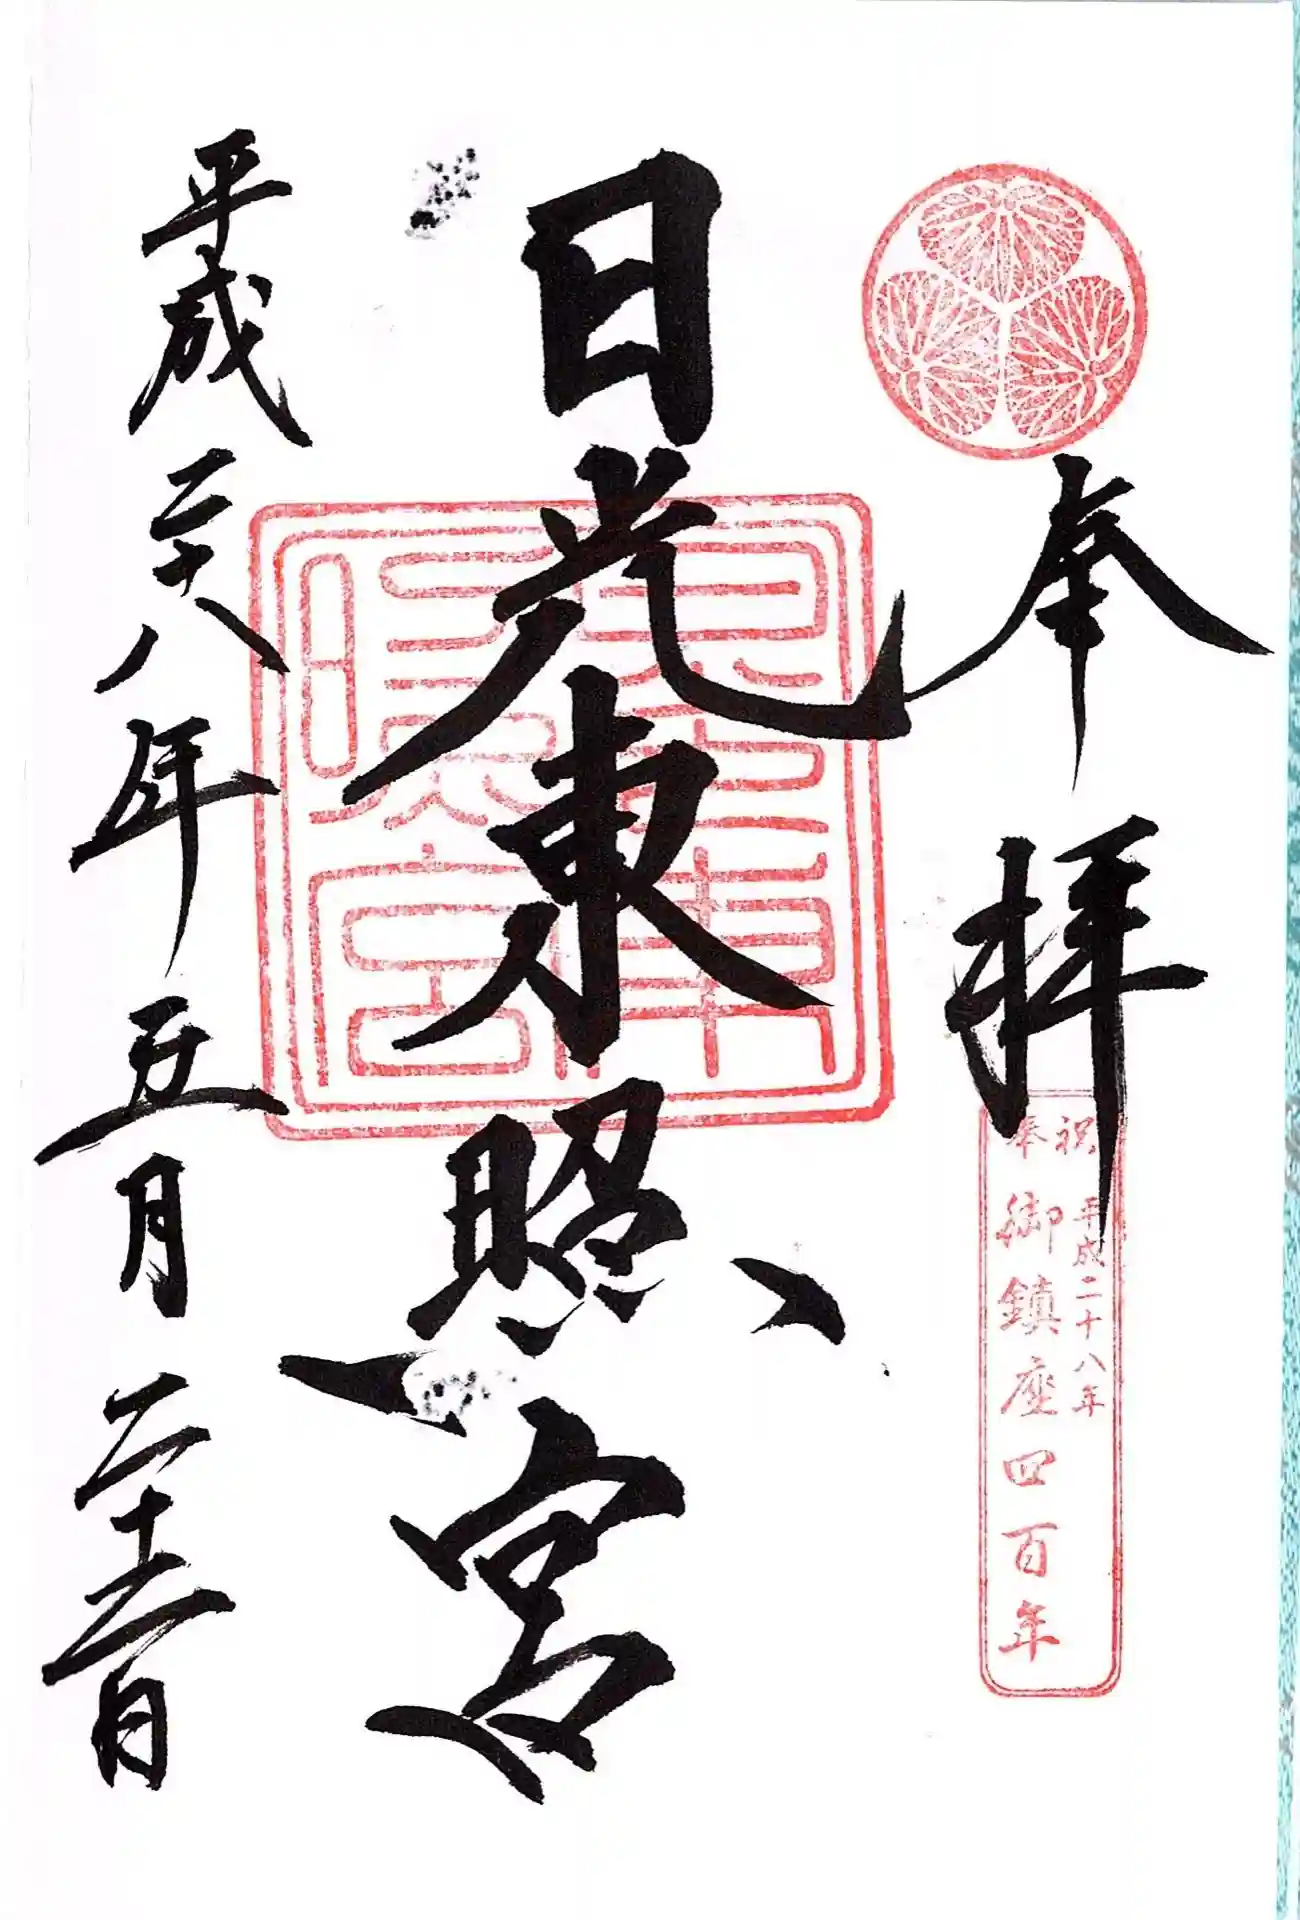 奉拝
奉祝
平成二十八年
御鎮座四百年
日光東照宮
平成二十八年五月二十二日